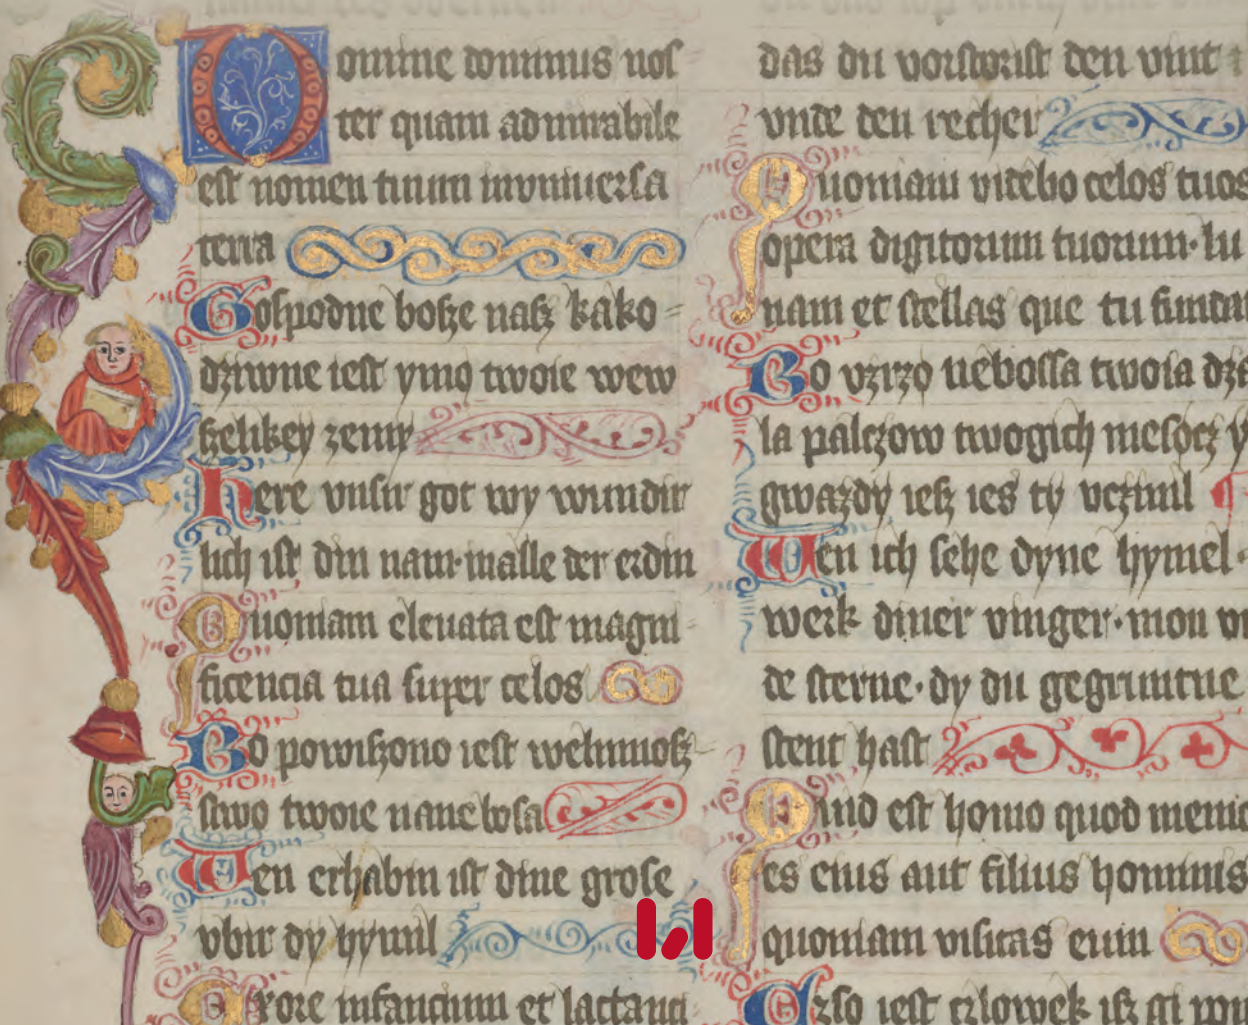 Domine dominus nos
ter quam admirabile
est nomen tuum in vniuersa
terra
Gospodne bosze nasz kako
dziwne iest ymø twoie wew
szelikey zemy
Here vnsir got wy wundir
lich ist din nam·in alle der erdin
Quoniam eleuata est magni
ficencia tua super celos
Bo powiszono iest welmnosz
stwo twoie na nebosa
Wen erhabin ist dine grose
vbir dy hymil
Ex ore infancium et lactanci
das du vorstorist den vint
vnde den recher
Quoniam videbo celos tuos
opera digitorum tuorum·lu
nam et stellas que tu funda
Bo vzrzø nebossa twoia dze
la palczow twogich mesøcz y
gwazdy iesz ies ty vczinil
Wen ich sehe dyne hymel·
werk diner vinger·mon vn
de sterne·dy du gegruntue
stent hast
Quid est homo quod memo
es eius aut filius hominis
quoniam visitas eum
Czso iest czlowek isz gi